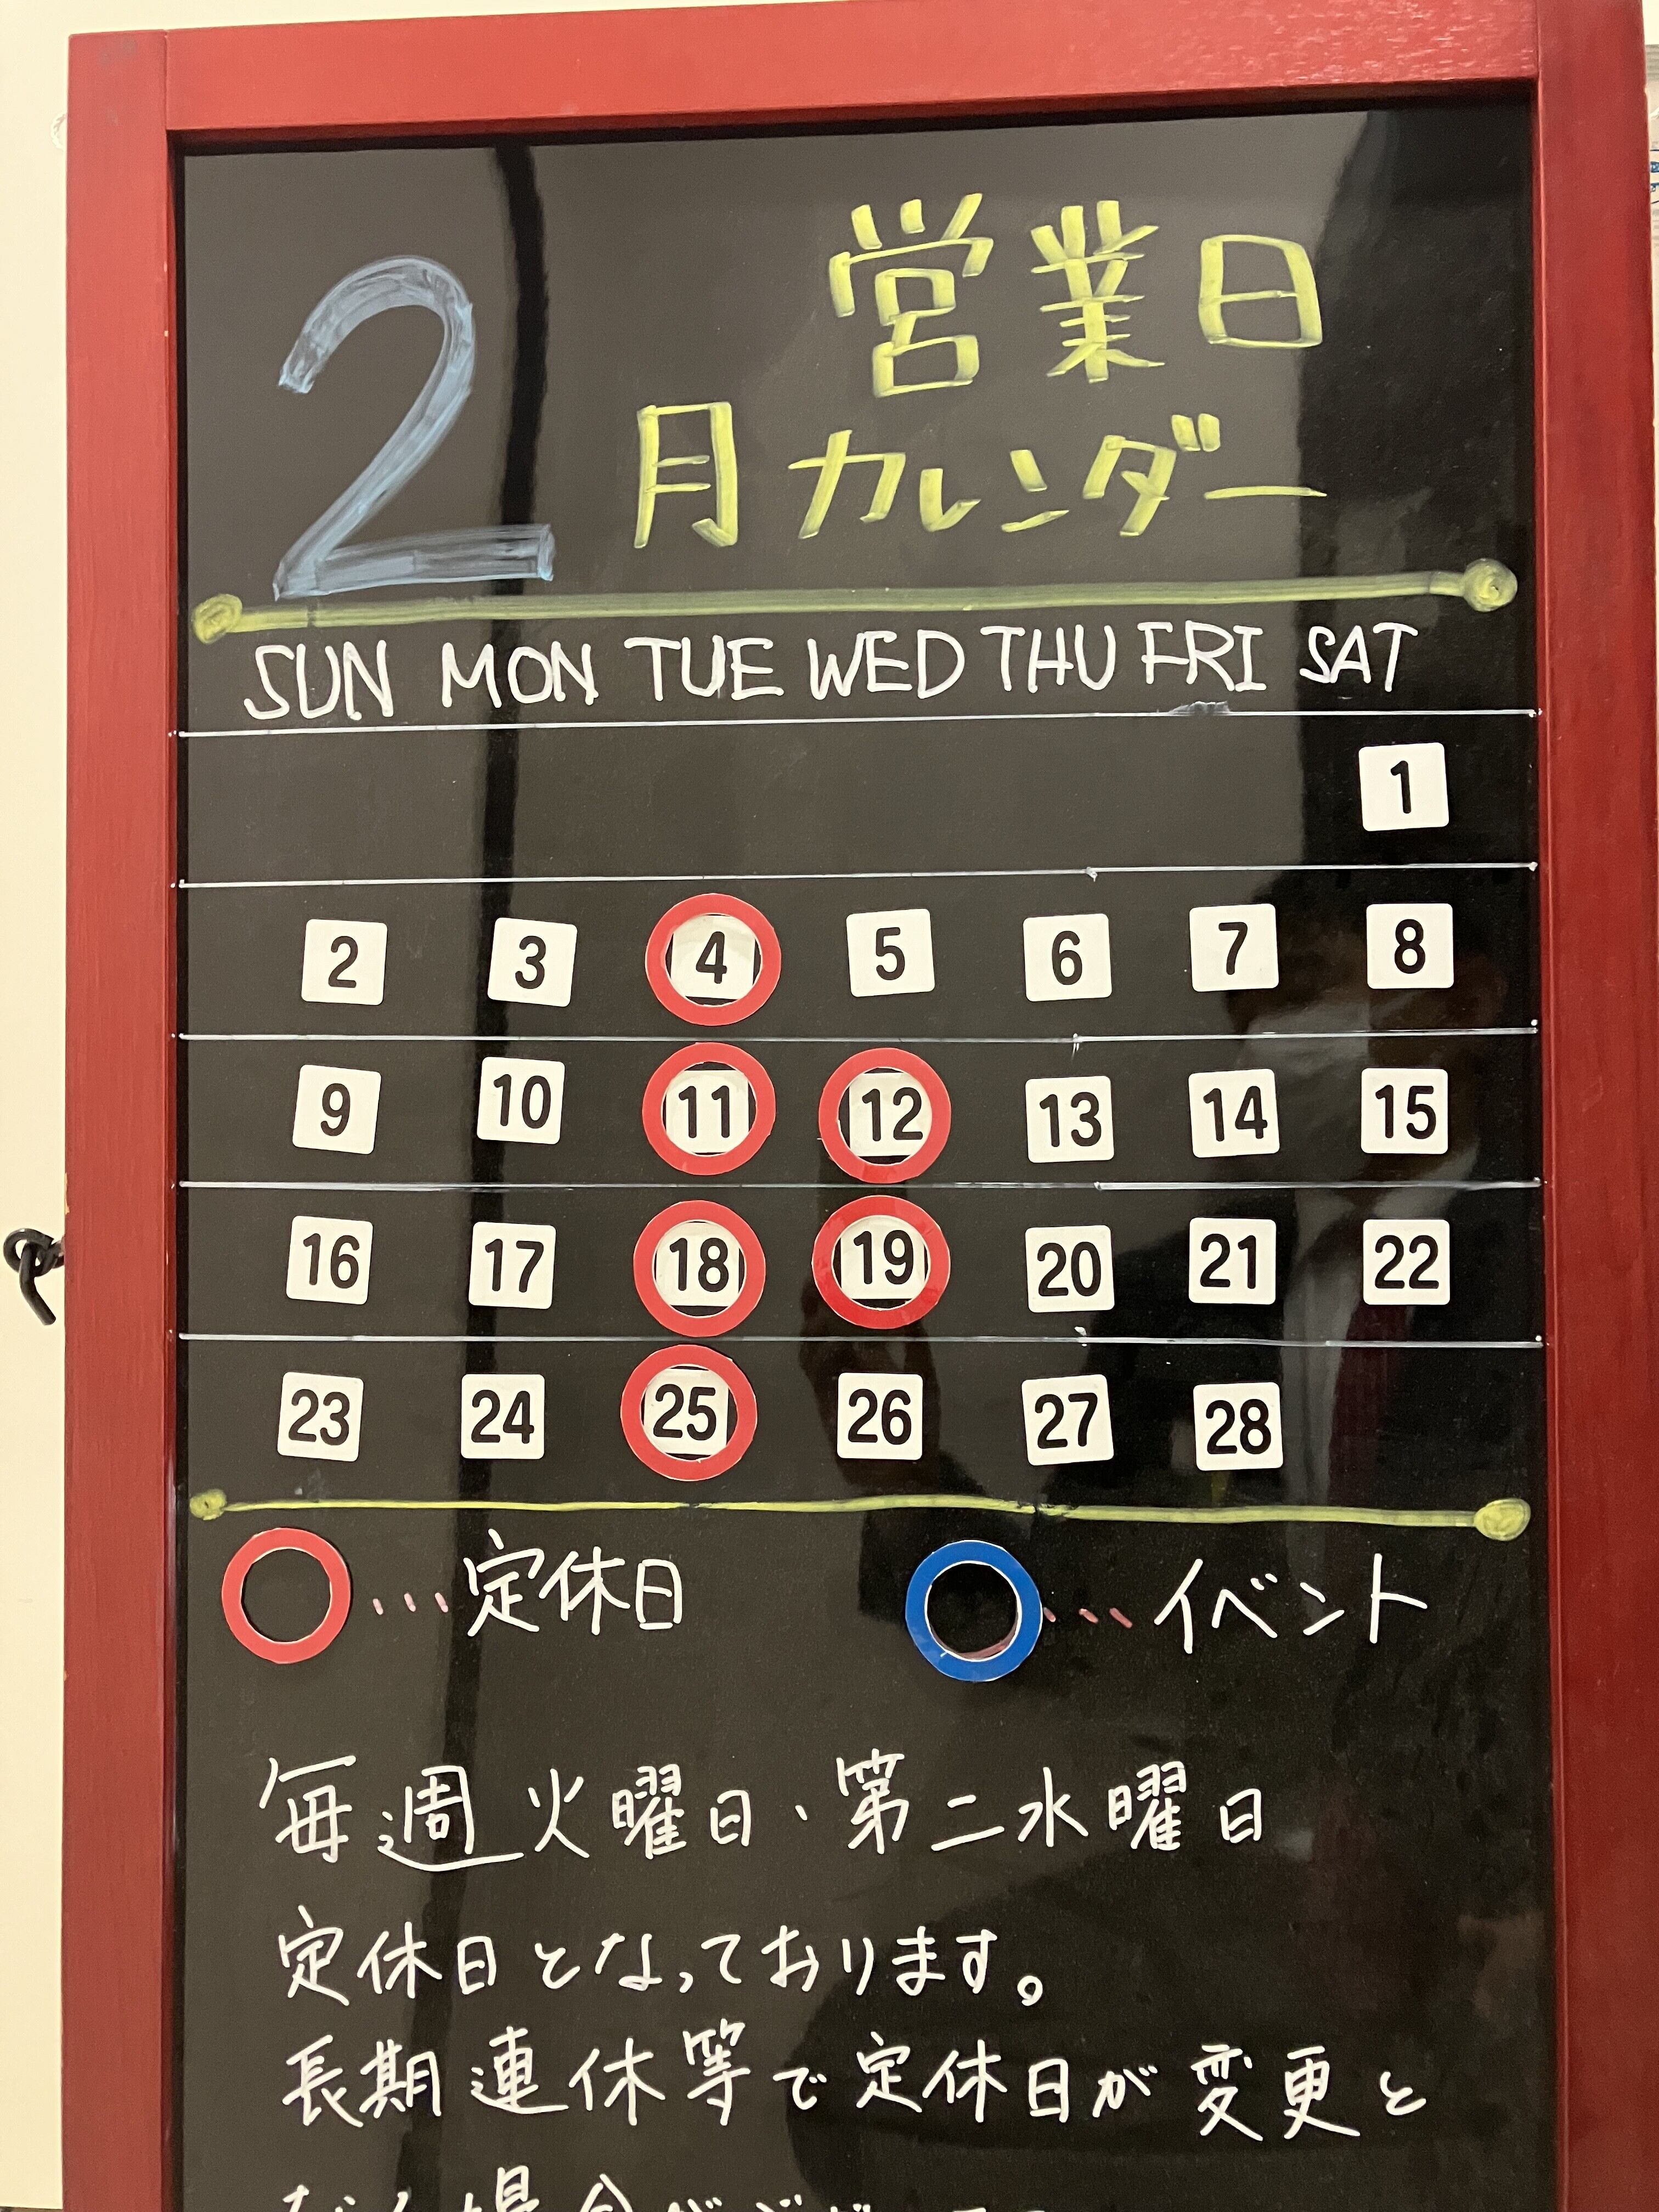 営業日
2月カレンダー
SUN MON TUE WED THU FRI SAT
1
2 3 4 5 6 7 8
9 10 11 12 13 14 15
16 17 18 19 20 21 22
23 24 25 26 27 28
…定休日 …イベント
毎週火曜日、第二水曜日
定休日となっております。
長期連休等で定休日が変更と